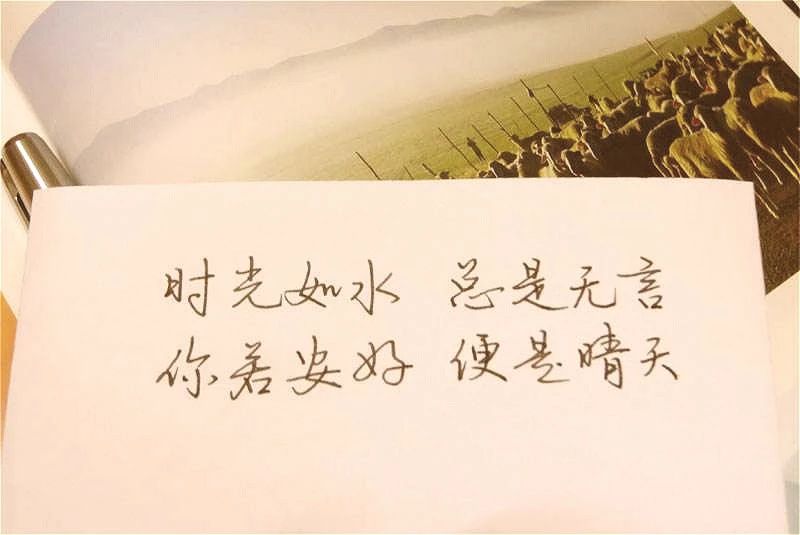 时光如水 总是无言
你若安好 便是晴天